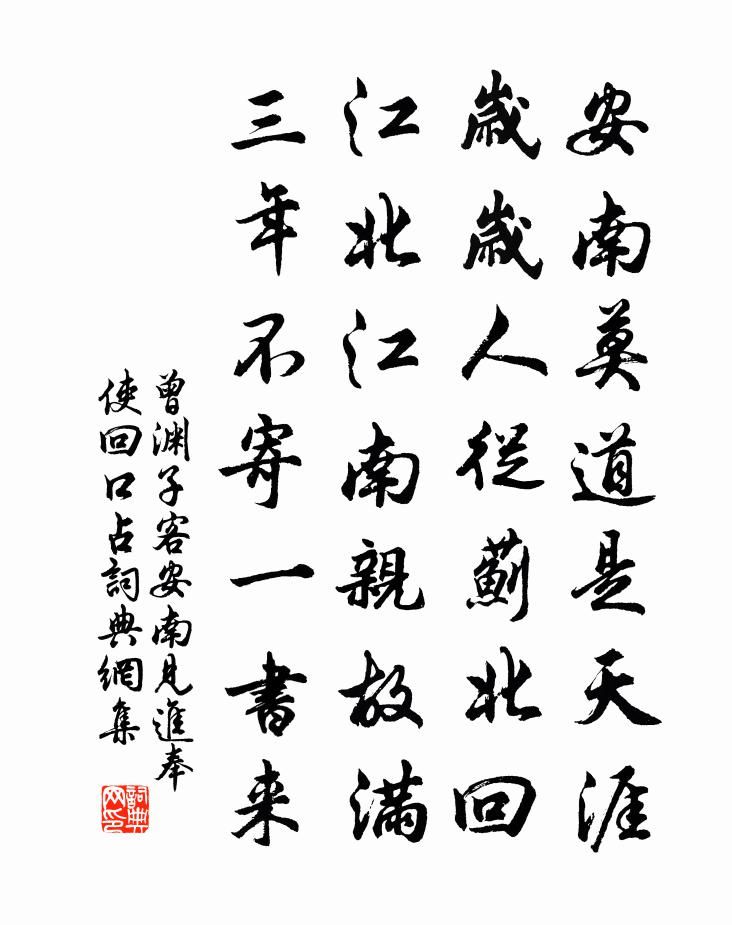 安南莫道是天涯
歳歳人從薊北回
江北江南親故滿
三年不寄一書来
曾渊子客安南見進奉
使回口占詞典網集
詞典
网印